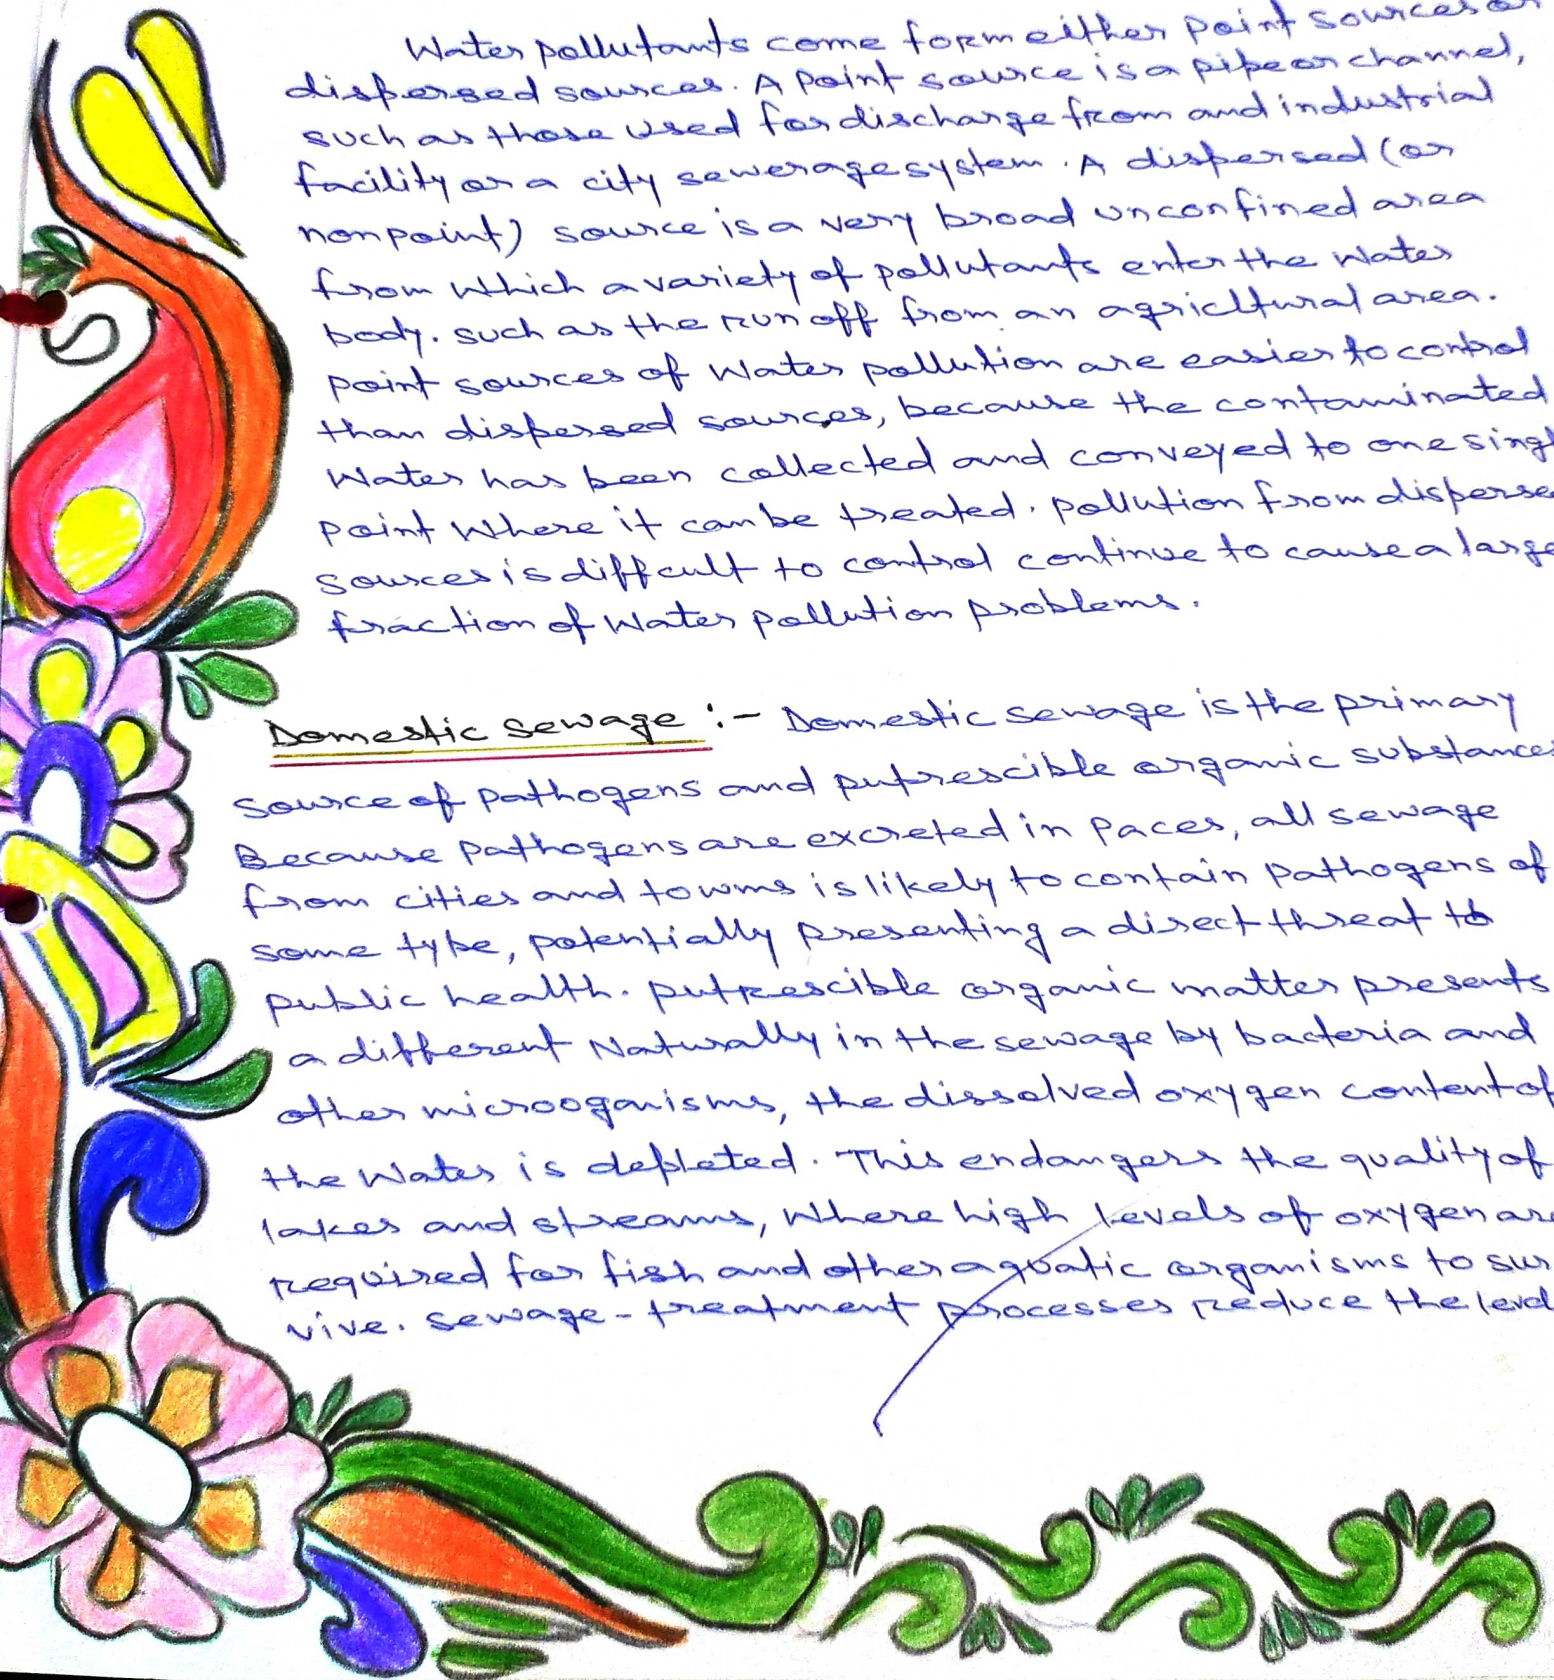 Water pollutants come form either point sources or
dispersed sources. A point source is a pipe or channel,
such as those used for discharge from and industrial
facility or a city sewerage system. A dispersed (or
nonpoint) source is a very broad unconfined area
from which a variety of pollutants enter the water
body. such as the run off from an agricltural area.
point sources of water pollution are easier to control
than dispersed sources, because the contaminated
water has been collected and conveyed to one singl
point where it can be treated. pollution from disperse
sources is difficult to control continue to cause a large
fraction of water pollution problems.
Domestic Sewage :- Domestic sewage is the primary
source of pathogens and putrescible organic substances
Because pathogens are excreted in paces, all sewage
from cities and towms is likely to contain pathogens of
some type, potentially presenting a direct threat to
public health. putrescible organic matter presents
a different Naturally in the sewage by bacteria and
other microoganisms, the dissolved oxygen content of
the water is depleted. This endangers the quality of
lakes and streams, where high levels of oxygen are
required for fish and other aquatic organisms to sur
vive. sewage-treatment processes reduce the level